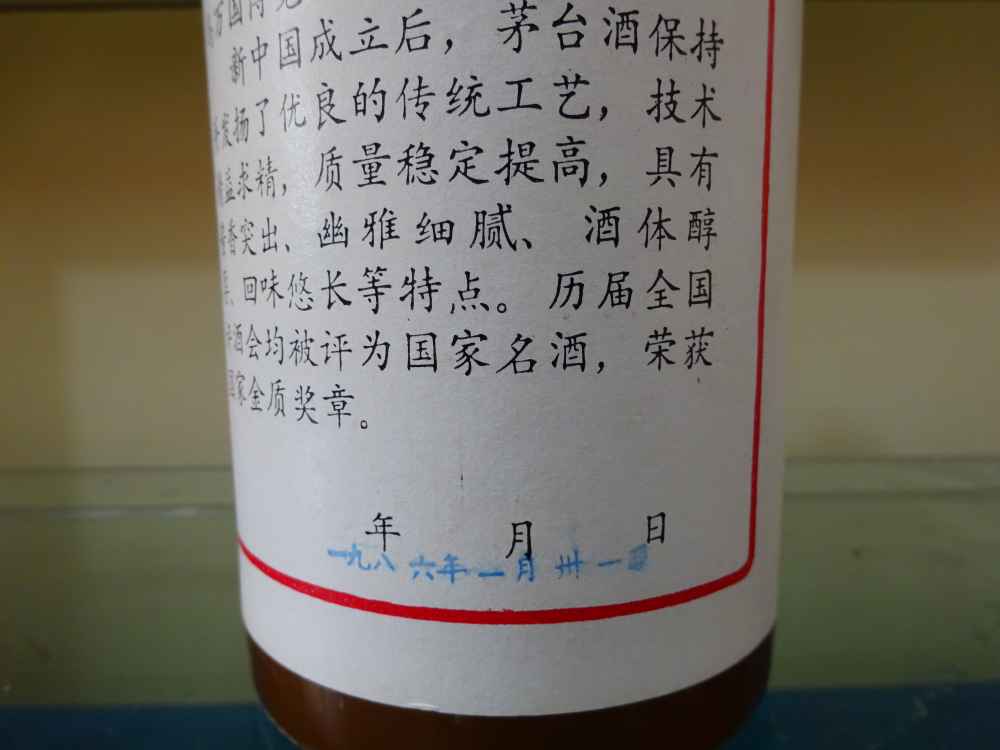 万国博览
新中国成立后，茅台酒保持
发扬了优良的传统工艺，技术
益求精，质量稳定提高，具有
香突出、幽雅细腻、酒体醇
、回味悠长等特点。历届全国
酒会均被评为国家名酒，荣获
国家金质奖章。
年 月 日
一九八六年一月卅一日